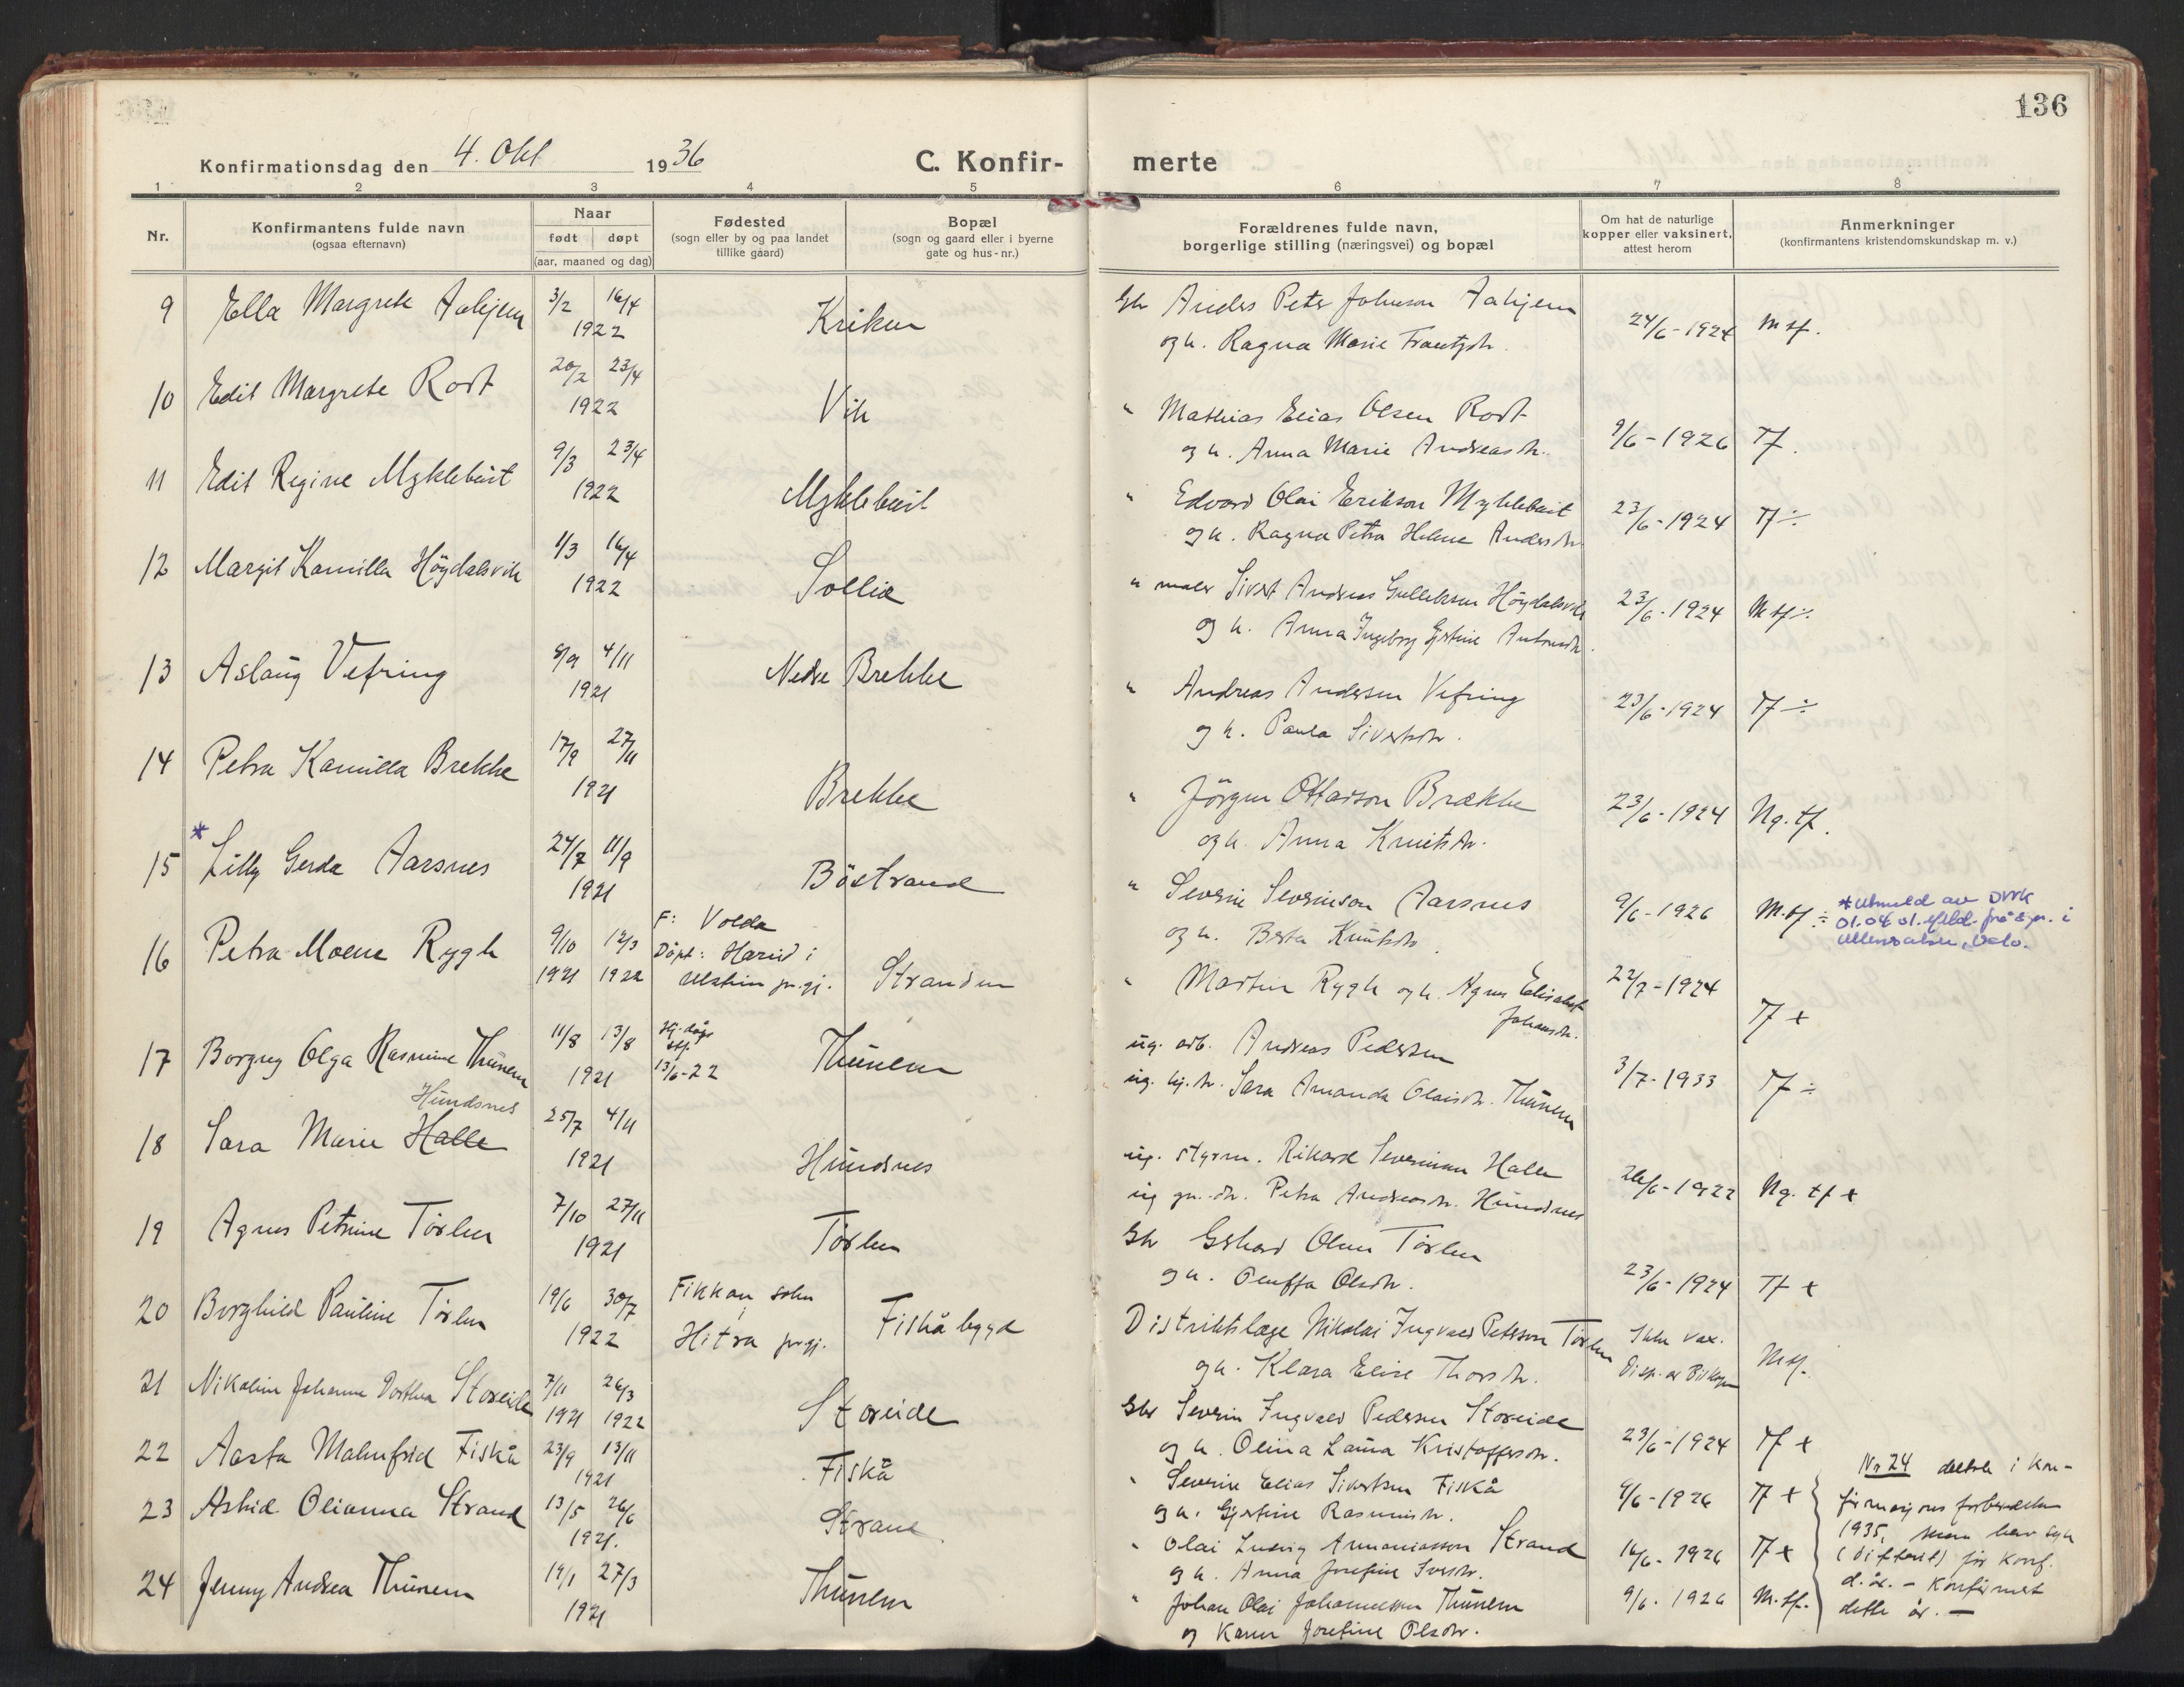 136
Konfirmationsdag den 4. Okt 1936 C. Konfirmerte
1 2 3 4 5 6 7 8
Nr.
Konfirmantens fulde navn
(ogsaa efternavn)
Naar
født døpt
(aar, maaned og dag)
Fødested
(sogn eller by og paa landet
tillike gaard)
Bopæl
(sogn og gaard eller i byerne
gate og hus-nr.)
Forældrenes fulde navn,
borgerlige stilling (næringsvei) og bopæl
Om hat de naturlige
kopper eller vaksinert,
attest herom
Anmerkninger
(konfirmantens kristendomskundskap m. v.)
9 Ella Margrete Aahjem 3/2 16/4 Kriken Gbr Anders Peter Johnson Aahjem 24/6-1924 M tf.
1922 og h. Ragna Marie
10 Edit Margrete Rodt 20/2 23/4 Vik " Mathias Elias Olsen Rodt 9/6-1926 Tf.
1922 og h. Anna Marie Andreasdr.
11 Edit Regine Myklebust 9/3 23/4 Myklebust " Edvard Olai Erikson Myklebust 23/6-1924 Tf ÷
1922 og h. Ragna Petra Helene Andersdr.
12 Margit Kamilla Höydalsvik 1/3 16/4 Sollia " maler Sivert Andreas Gulleksen Höydalsvik 23/6-1924 M tf ÷
1922 og h. Anna Ingeborg Gjertine
13 Aslaug Vefring 8/9 4/11 Nedre Brekke " Andreas Andersen Vefring 23/6-1924 Tf ÷
1921 og h. Paula Sivertsdr.
14 Petra Kamilla Brekke 17/9 27/11 Brekke " Jörgen Ottarson Brække 23/6-1924 Ng. tf.
1921 og h. Anna Knutsdr.
15 * Lilly Gerda Aarsnes 24/7 11/9 Böstrand " Severin Severinson Aarsnes 9/6-1926 M. tf ÷
1921 og h. Berta Knutsdr.
* Utmeld av DNK
01.04.01. i
Oslo.
16 Petra Moene Rygh 9/10 12/3 F: Volda Stranden " Martin Rygh og h. Agnes Elisabet 22/7-1924 Tf +
1921 1922 Döpt: Hareid i Johansdr.
Ulstein pr.gj.
17 Borgny Olga Rasmine Thunem 11/8 13/8 Hj. döpt Thunem ug. arb. Andreas Pedersen 3/7-1933 Tf ÷
1921 stf. ug. hj. h. Sara Amanda Olaisdr. Thunem
13/6-22
Hundsnes
18 Sara Marie Halle 25/7 4/11 Hundsnes ug. styrm. Rikard Severinsen Halle 26/6-1922 Ng. tf +
1921 ug. gn. dr. Petra Andreasdr. Hundsnes
19 Agnes Petrine Törlen 7/10 27/11 Törlen Gbr Gerhard Olsen Törlen 23/6-1924 Tf +
1921 og h. Oluffa Olsdr.
20 Borghild Pauline Törlen 19/6 30/7 Fikkan, sokn Fiskåbygd Distriktslæge Nikolai Ingvald Peterson Törlen Ikke vax. M tf.
1922 Hitra pr.gj. og h. Klara Elise Thorsdr. Disp. av Biskopen
21 Nikoline Johanne Dorthea Storeide 7/11 26/3 Storeide Gbr Severin Ingvald Pedersen Storeide 23/6-1924 Tf +
1921 1922 og h. Olina Laura Kristoffersdr.
22 Aasta Malmfrid Fiskå 23/9 13/11 Fiskå " Severin Elias Sivertsen Fiskå 9/6-1926 Tf +
1921 og h. Gjertine Rasmusdr.
23 Astrid Olianna Strand 13/5 26/6 Strand " Olai Ludvig Annaniasson Strand 16/6-1926 Tf +
1921. og h. Anna Josefine Iversdr.
24 Jenny Andrea Thunem 19/1 27/3 Thunem " Johan Olai Johannessen Thunem 9/6-1926 M. tf.
1921 og Karen Josefine Olsdr.
Nr 24 deltok i kon-
firmasjons forberedelsen
1935, men blev syk
(difterit) før konf.
d. år. – Konfirmert
dette år. –